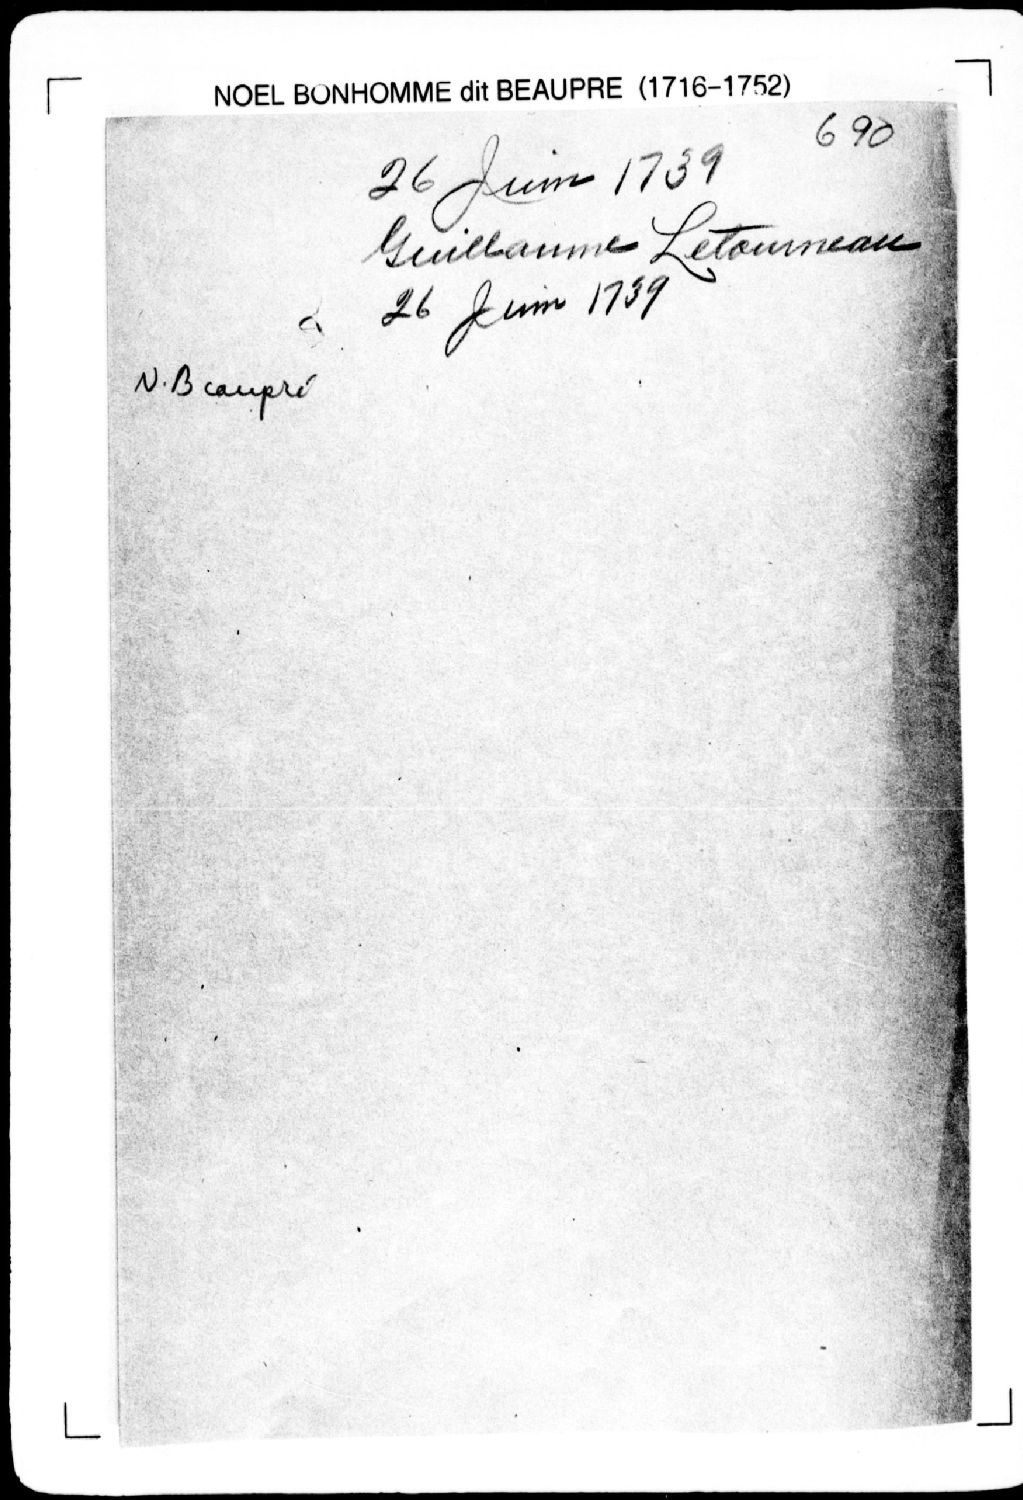 NOEL BONHOMME dit BEAUPRE (1716-1752)
690
26 Juin 1739
Guillaume Letourneau
26 Juin 1739
N. Beaupré